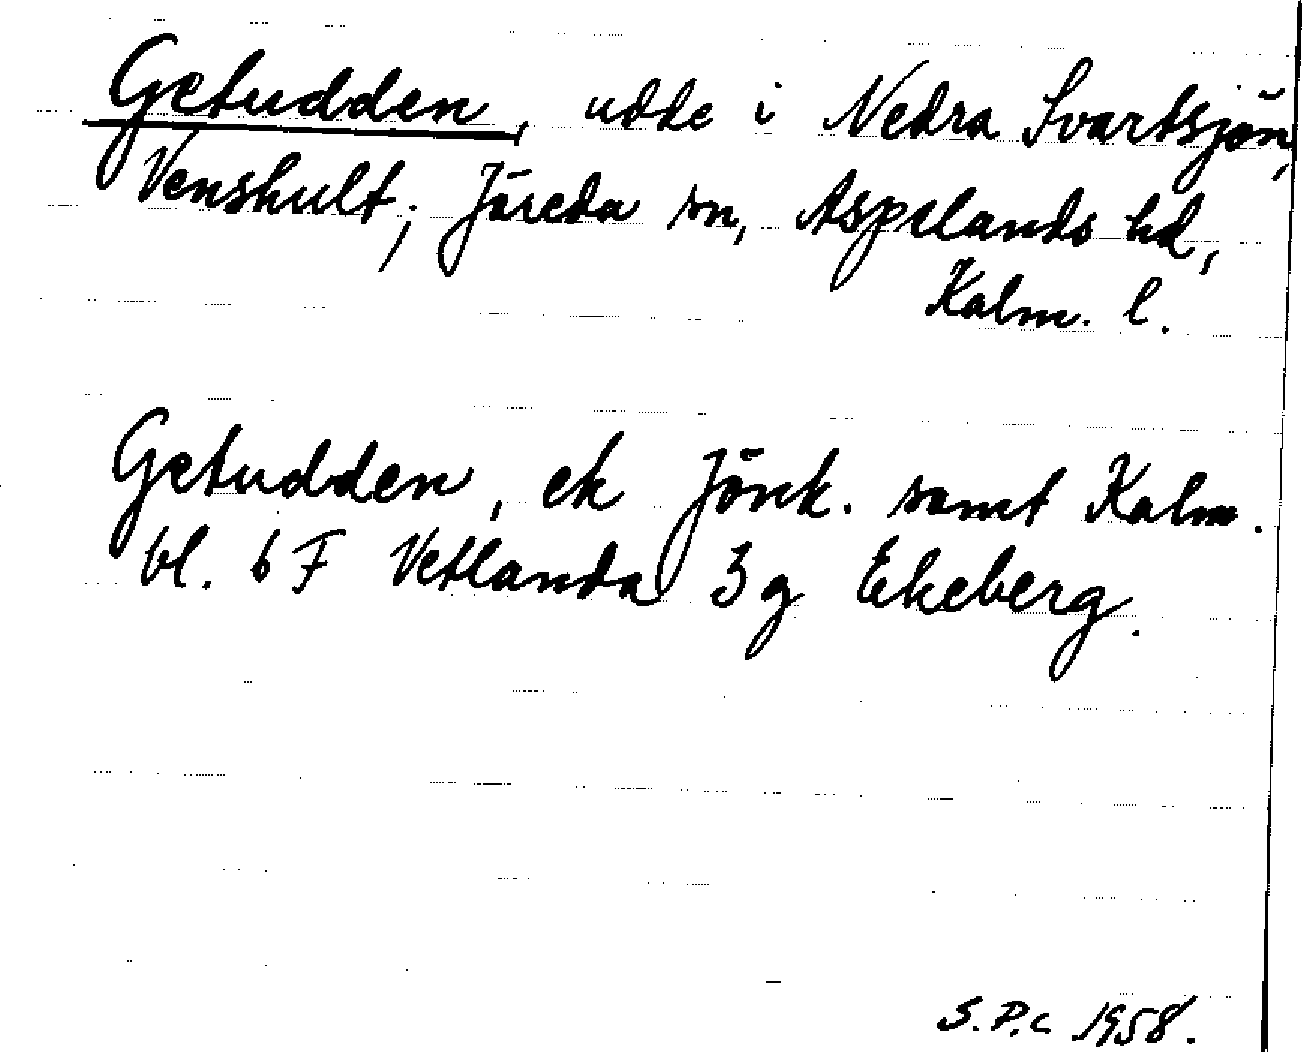 Getudden, udde i Nedra Svartsjön,
Venshult; Järeda sn, Aspelands hd,
Kalm. l.
Getudden, ek Jönk. samt Kalm.
bl. 6 F Vetlanda 3 g Ekeberg.
S.P.C 1958.